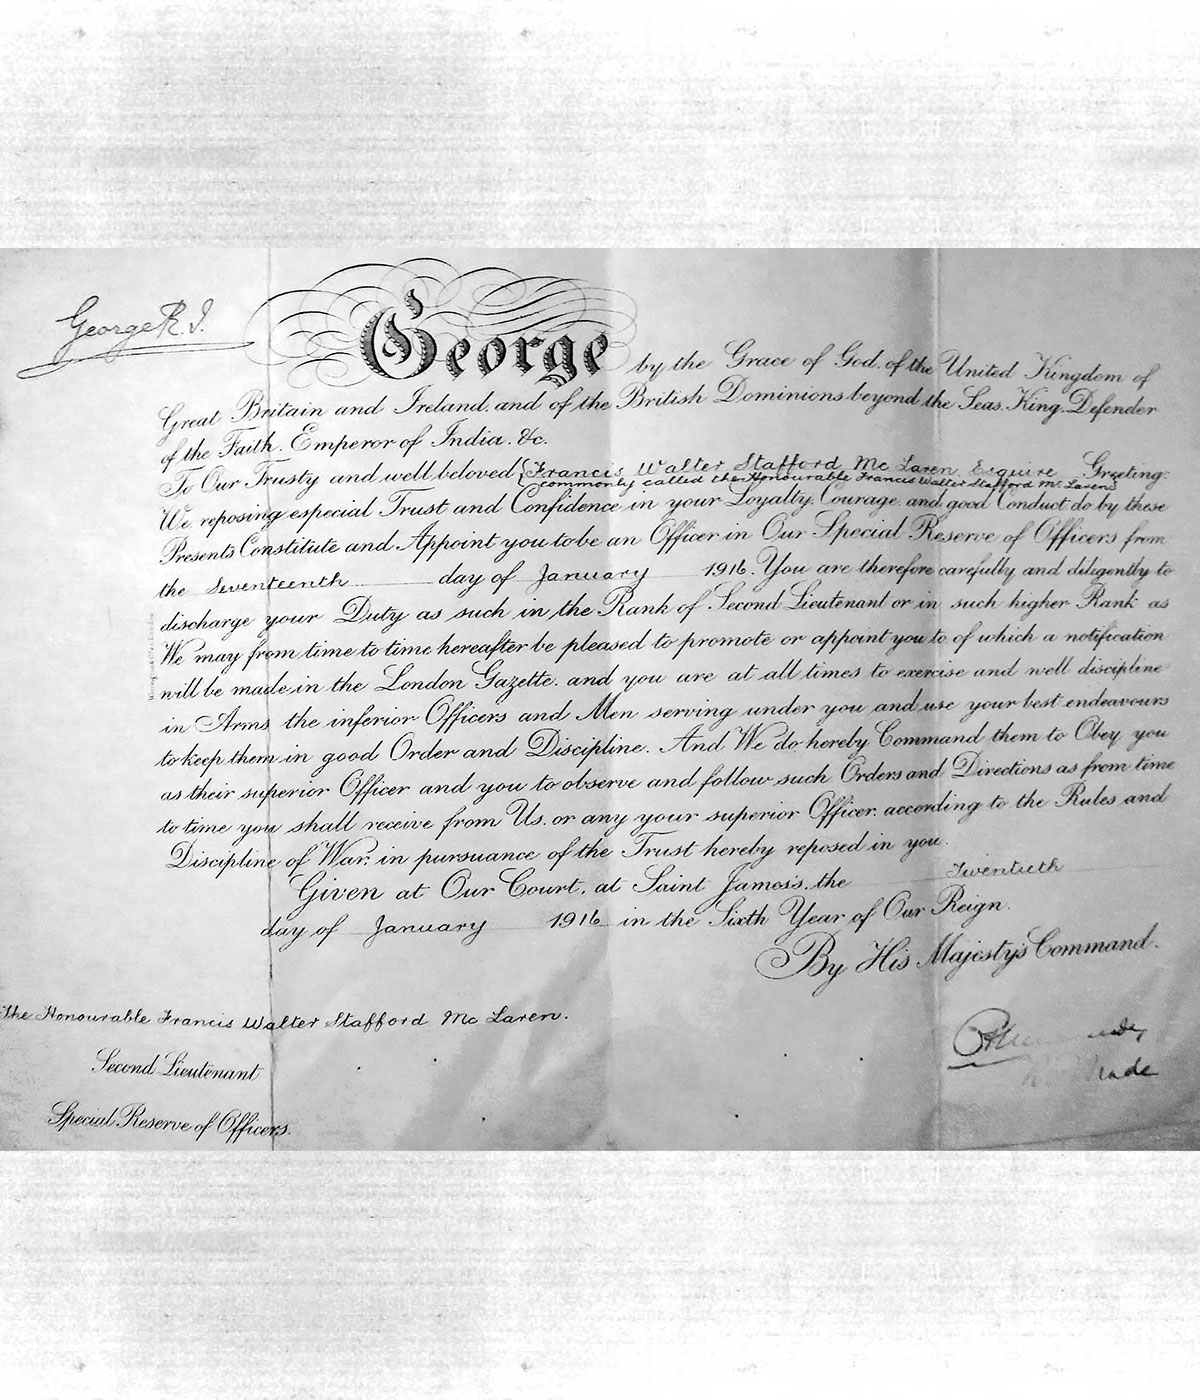 George R.I.
George by the Grace of God, of the United Kingdom of
Great Britain and Ireland, and of the British Dominions beyond the Seas, King, Defender
of the Faith, Emperor of India, &c.
To Our Trusty and well beloved {Francis Walter Stafford Mc Laren Esquire Greeting:
commonly called the Honourable Francis Walter Stafford Mc Laren}
We reposing especial Trust and Confidence in your Loyalty, Courage, and good Conduct do by these
Presents Constitute and Appoint you to be an Officer in Our Special Reserve of Officers from
the Seventeenth day of January 1916. You are therefore carefully and diligently to
discharge your Duty as such in the Rank of Second Lieutenant or in such higher Rank as
We may from time to time hereafter be pleased to promote or appoint you to of which a notification
will be made in the London Gazette, and you are at all times to exercise and well discipline
in Arms the inferior Officers and Men serving under you and use your best endeavours
to keep them in good Order and Discipline. And We do hereby Command them to Obey you
as their superior Officer and you to observe and follow such Orders and Directions as from time
to time you shall receive from Us, or any your superior Officer, according to the Rules and
Discipline of War, in pursuance of the Trust hereby reposed in you.
Given at Our Court, at Saint James's, the Twentieth
day of January 1916 in the Sixth Year of Our Reign.
By His Majesty's Command.
The Honourable Francis Walter Stafford Mc Laren.
Second Lieutenant
Special Reserve of Officers.